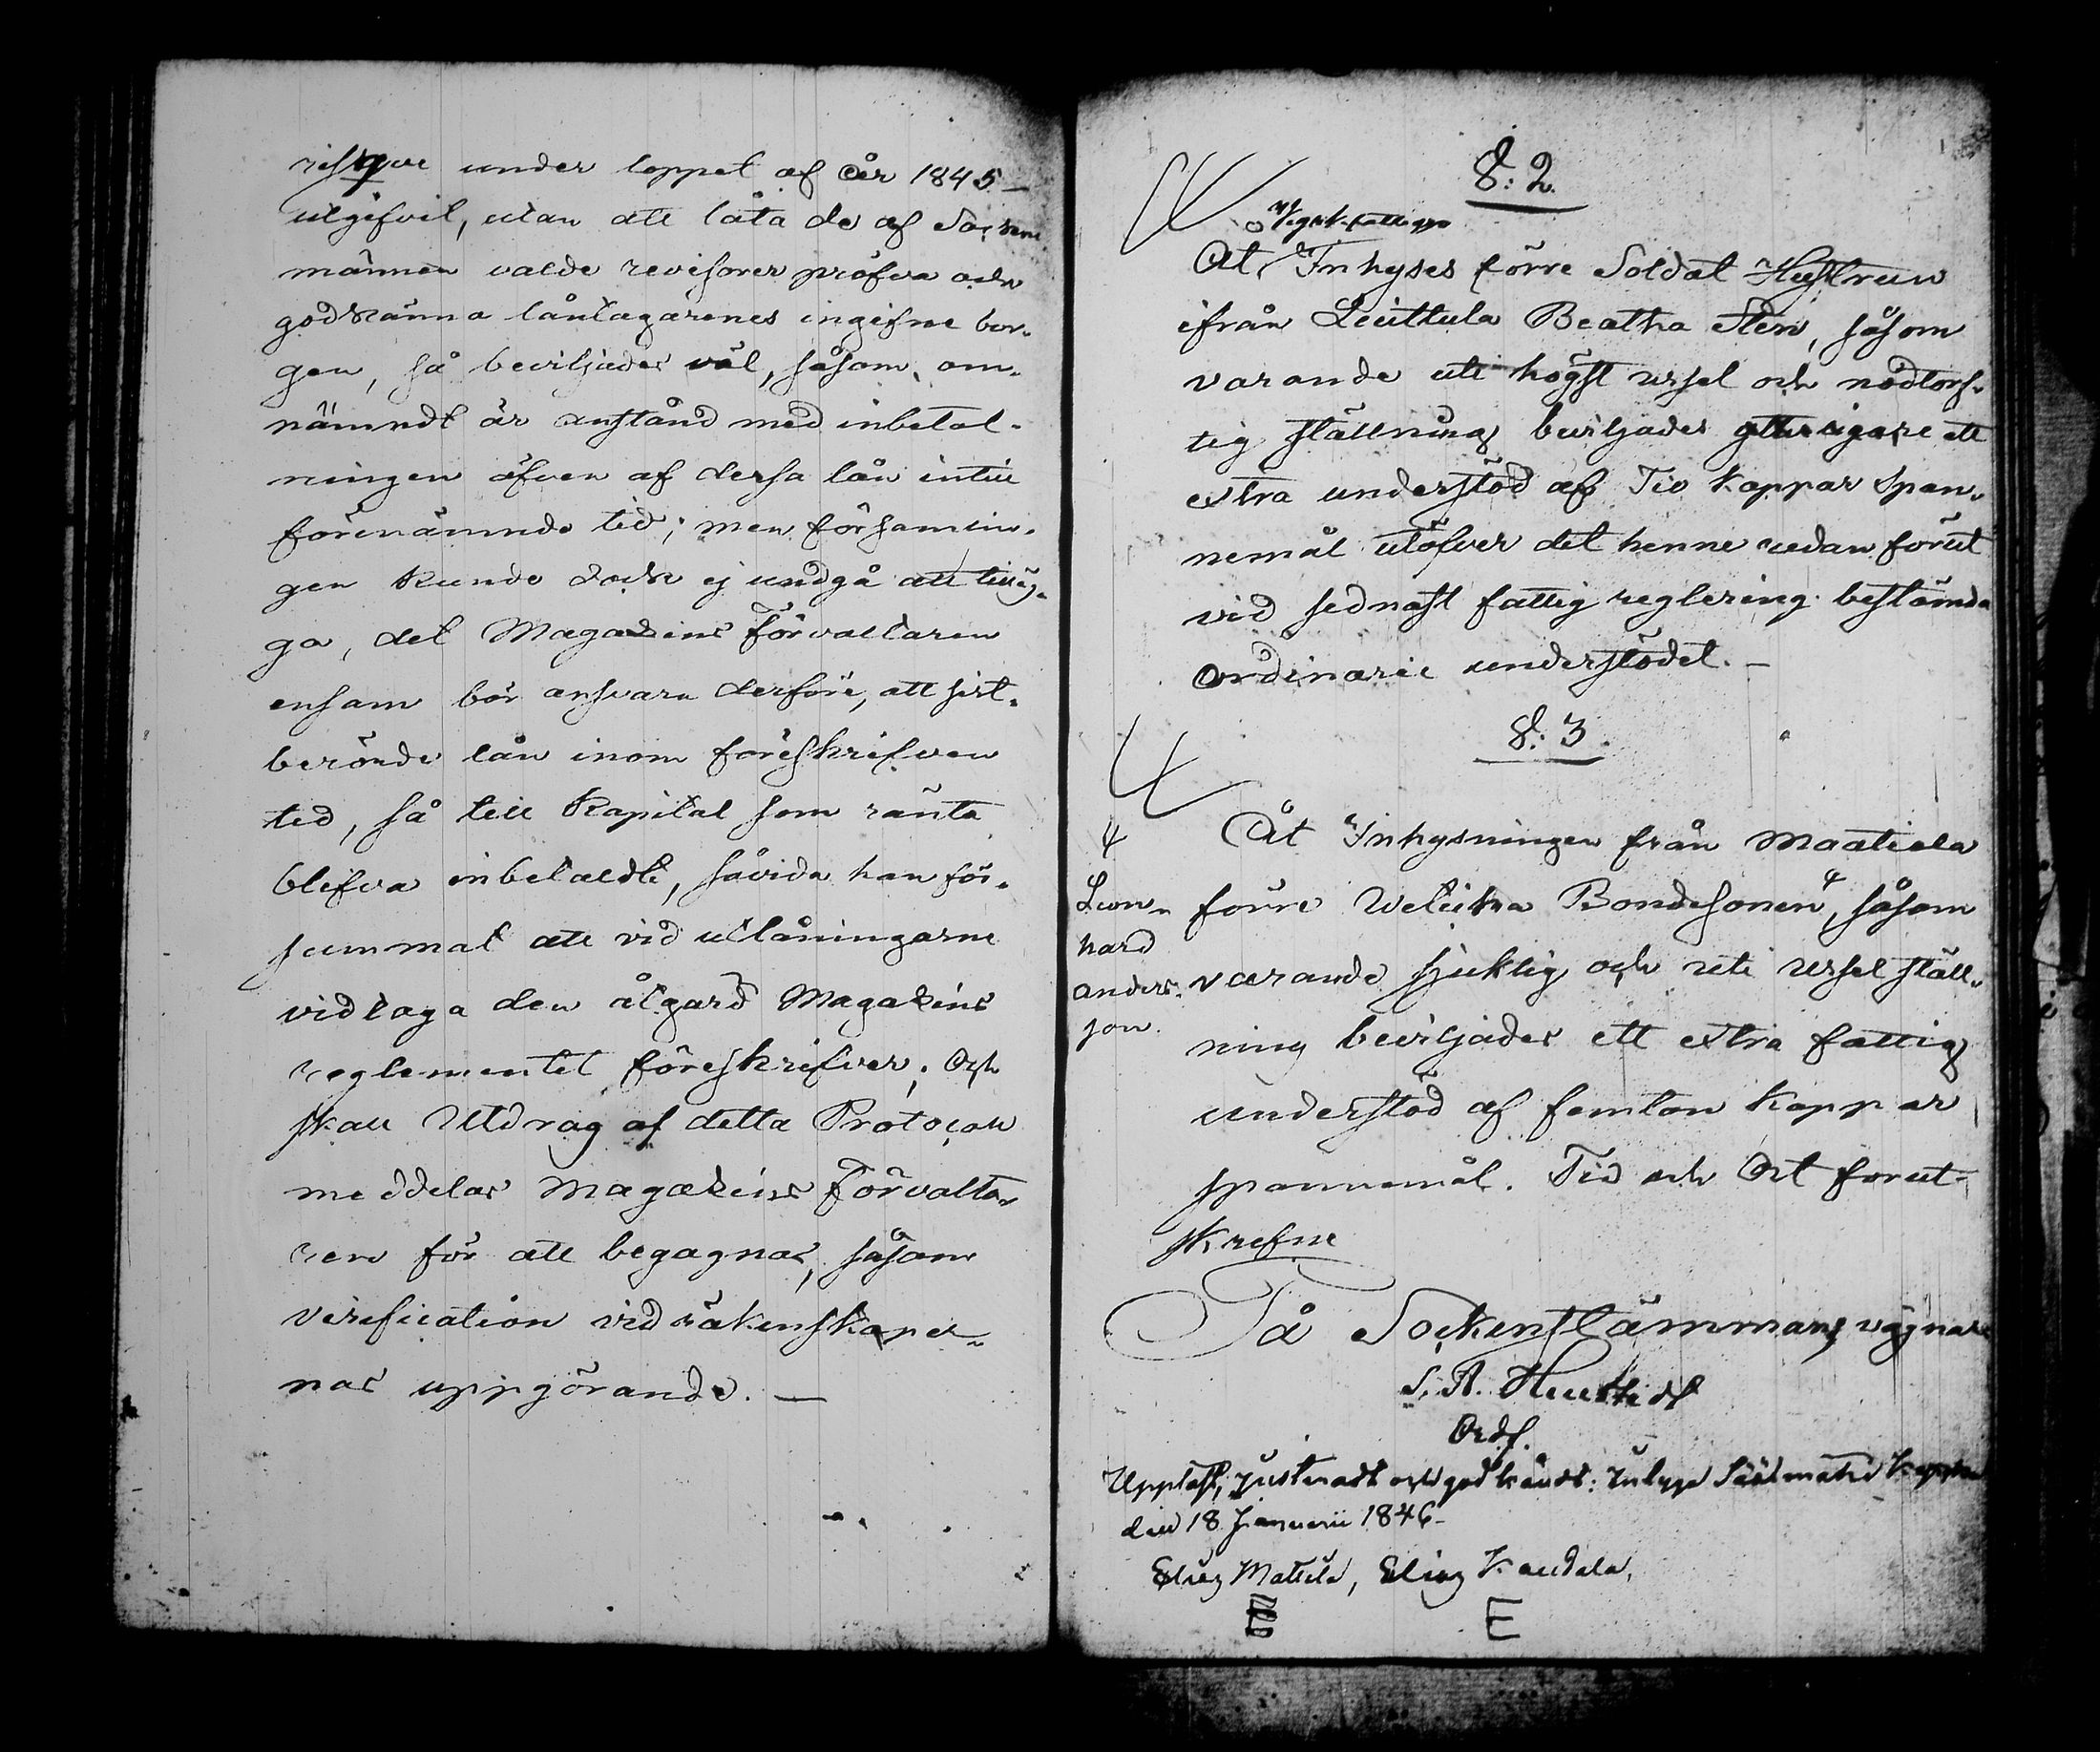 risque under loppet af år 1845 —
utgifvit, utan att låta de af Socken
männen valde revisorer pröfva och
godkänna låntagarenes ingifne bor-
gen, så beviljades väl, såsom, om-
nämndt är anstånd med inbetal-
ningen äfven af dessa lån intill
förenämnde tid; men församlin-
gen kunde dock ej undgå att tilläg-
ga, det Magazins Förvaltaren
ensam bör ansvara derföre, att sist-
berörde lån inom föreskrifven
tid, så till Kapital som ränta
blefva inbetaldte, såvida han för-
summat att vid utlåningarne
vidtaga den åtgärd Magazins
reglementet föreskrifver; Och
skall Utdrag af detta Protocoll
meddelas Magazins Förvalta-
ren för att begagnas, såsom
verification vid räkenskaper-
nas uppgörande. —
§. 2.
At Inhyses förre Soldat Hustrun
ifrån Leuttula Beatha Sten, såsom
varande uti högst ussel och nödtorf-
tig ställning beviljades ytterligare ett
extra understöd af Tio kappar Span-
nemål utöfver det henne redan förut
vid sednast fattig reglering bestämda
ordinarie understödet. —
§. 3.
Åt Inhysningen från Maatiala
förre Bondesonen ⱡ, såsom
varande sjuklig och uti ussel ställ-
ning beviljades ett extra fattig
understöd af femton kappar
spannemål. Tid och Ort forut-
skrefne
ⱡ
Leon-
hard
anders-
son.
På Sockenstämmans vägnar
Ordf.
Uppläst, justeradt och godkändt:
den 18 Januarii 1846 —
Elias Mattila, Elias Kaudala,
E